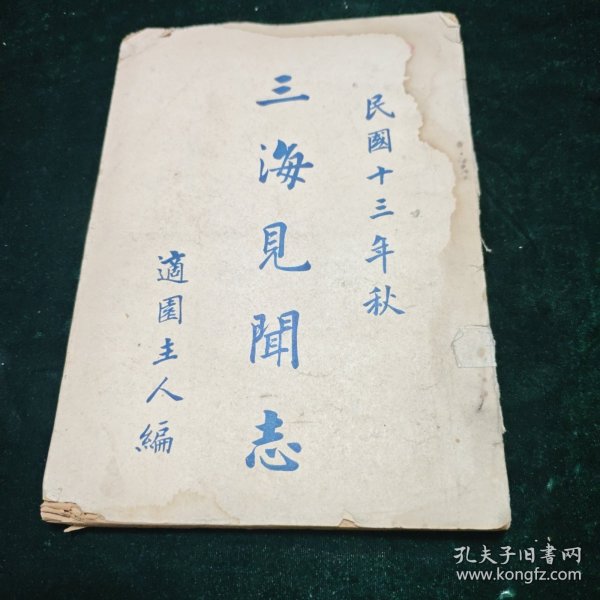 民國十三年秋
三海見聞志
適園主人編
孔夫子旧書网
www.kongfz.com